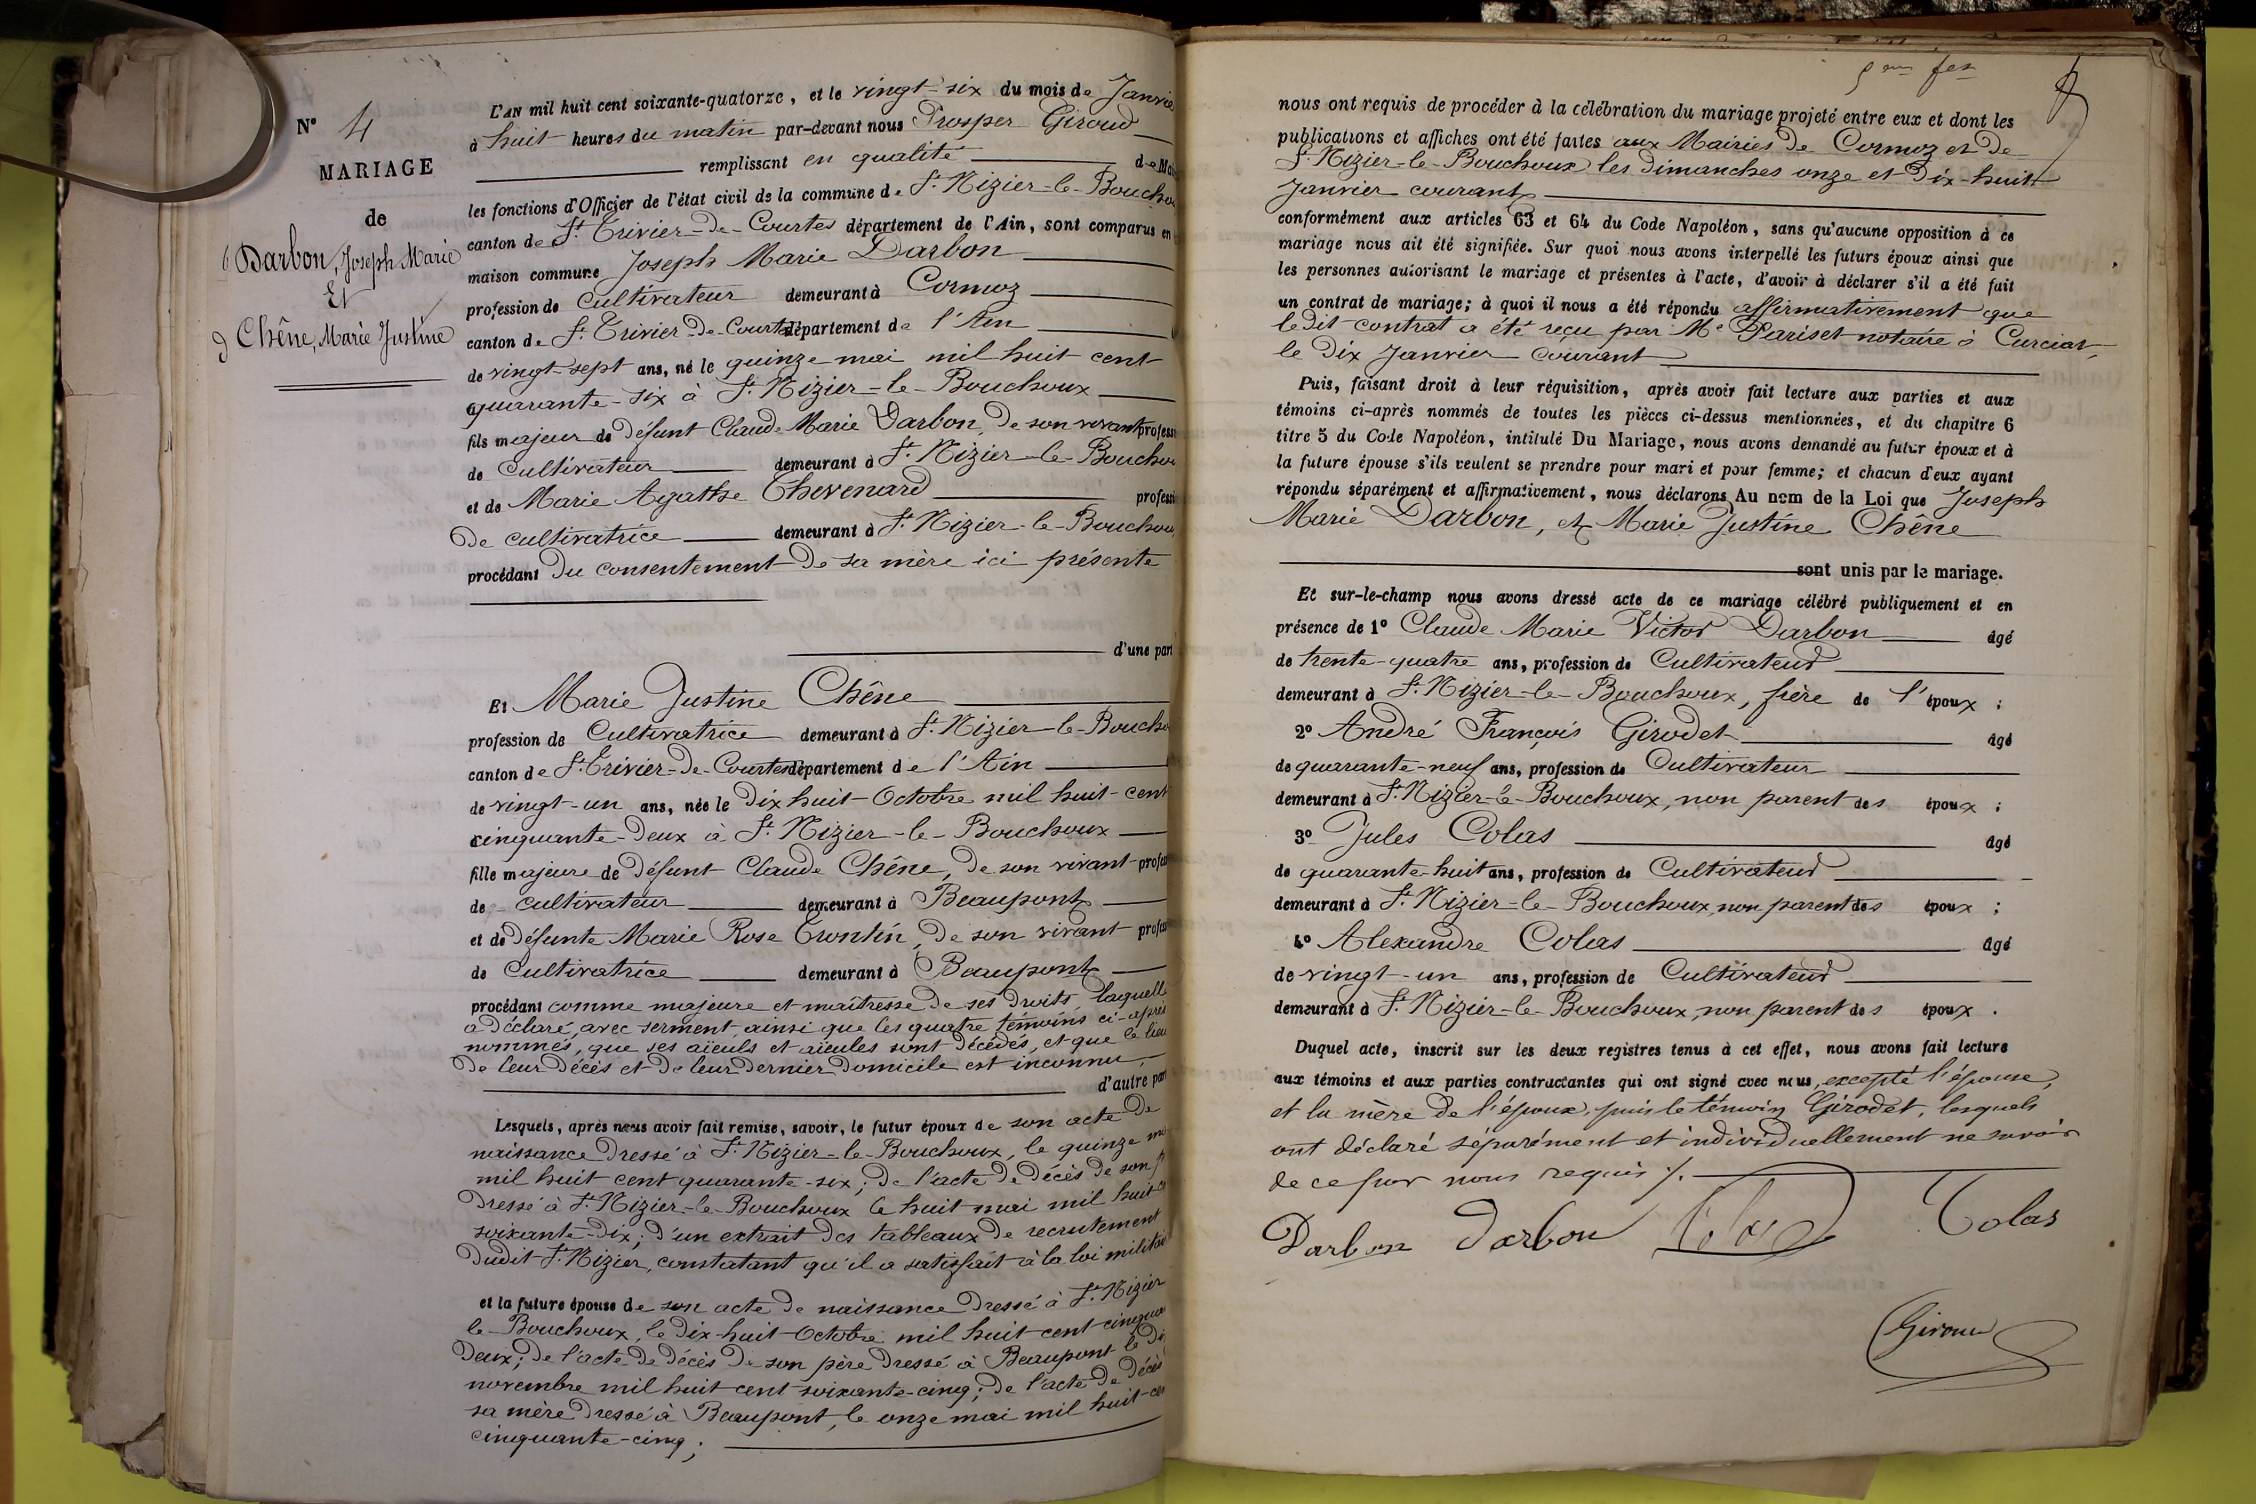 N° 4
MARIAGE
de
Darbon, Joseph Marie
Et
Chêne, Marie Justine
L'AN mil huit cent soixante-quatorze, et le vingt-six du mois de Janvie
à huit heures du matin par-devant nous Prosper Giroud
remplissant en qualité de Mai
les fonctions d'Officier de l'état civil de la commune de St Nizier-le-Bouchou
canton de St Trivier-de-Courtes département de l'Ain, sont comparus en
maison commune Joseph Marie Darbon
profession de Cultivateur demeurant à Cormoz
canton de St Trivier-de-Courtes département de l'Ain
de vingt-sept ans, né le quinze mai mil huit cent
quarante-six à St Nizier-le-Bouchoux
fils majeur de défunt Claude Marie Darbon, de son vivant profess
de Cultivateur demeurant à St Nizier-le-Bouchou
et de Marie Agathe Chevenard professi
de cultivatrice demeurant à St Nizier-le-Bouchou
procédant du consentement de sa mère ici présente
d'une part
Et Marie Justine Chêne
profession de Cultivatrice demeurant à St Nizier-le-Boucho
canton de St Trivier-de-Courtes département de l'Ain
de vingt-un ans, née le dix huit Octobre mil huit-cent
cinquante-deux à St Nizier-le-Bouchoux
fille majeure de défunt Claude Chêne, de son vivant profes
de cultivateur demeurant à Beaupont
et de défunte Marie Rose Trontin, de son vivant profes
de Cultivatrice demeurant à Beaupont
procédant comme majeure et maîtresse de ses droits laquelle
a déclaré, avec serment, ainsi que les quatre témoins ci-après
nommés, que ses aïeuls et aïeules sont décédés, et que le lieu
de leur décès et de leur dernier domicile est inconnu
d'autre part
Lesquels, après nous avoir fait remise, savoir, le futur époux de son acte de
naissance dressé à St Nizier-le-Bouchoux, le quinze mai
mil huit cent quarante-six; de l'acte de décès de son p
dressé à St Nizier-le-Bouchoux le huit mai mil huit c
soixante-dix; d'un extrait des tableaux de recrutement
dudit St Nizier, constatant qu'il a satisfait à la loi militai
et la future épouse de son acte de naissance dressé à St Nizier
le-Bouchoux, le dix-huit Octobre mil huit cent cinquan
deux; de l'acte de décès de son père dressé à Beaupont le di
novembre mil huit cent soixante-cinq; de l'acte de décès
sa mère dressé à Beaupont, le onze mai mil huit-cen
cinquante-cinq;
nous ont requis de procéder à la célébration du mariage projeté entre eux et dont les
publications et affiches ont été faites aux Mairies de Cormoz et de
St Nizier-le-Bouchoux les dimanches onze et dix-huit
Janvier courant
conformément aux articles 63 et 64 du Code Napoléon, sans qu'aucune opposition à ce
mariage nous ait été signifiée. Sur quoi nous avons interpellé les futurs époux ainsi que
les personnes autorisant le mariage et présentes à l'acte, d'avoir à déclarer s'il a été fait
un contrat de mariage; à quoi il nous a été répondu affirmativement que
ledit contrat a été reçu par Me Pariset notaire à Curciat,
le dix Janvier courant
Puis, faisant droit à leur réquisition, après avoir fait lecture aux parties et aux
témoins ci-après nommés de toutes les pièces ci-dessus mentionnées, et du chapitre 6
titre 5 du Code Napoléon, intitulé Du Mariage, nous avons demandé au futur époux et à
la future épouse s'ils veulent se prendre pour mari et pour femme; et chacun d'eux ayant
répondu séparément et affirmativement, nous déclarons Au nom de la Loi que Joseph
Marie Darbon, et Marie Justine Chêne
sont unis par le mariage.
Et sur-le-champ nous avons dressé acte de ce mariage célébré publiquement et en
présence de 1° Claude Marie Victor Darbon âgé
de trente-quatre ans, profession de Cultivateur
demeurant à St Nizier-le-Bouchoux, frère de l'époux;
2° André François Girodet âgé
de quarante-neuf ans, profession de Cultivateur
demeurant à St Nizier-le-Bouchoux, non parent des époux;
3° Jules Colas âgé
de quarante-huit ans, profession de Cultivateur
demeurant à St Nizier-le-Bouchoux, non parent des époux;
4° Alexandre Colas âgé
de vingt-un ans, profession de Cultivateur
demeurant à St Nizier-le-Bouchoux, non parent des époux.
Duquel acte, inscrit sur les deux registres tenus à cet effet, nous avons fait lecture
aux témoins et aux parties contractantes qui ont signé avec nous, excepté l'épouse,
et la mère de l'époux, puis le témoin Girodet, lesquels
ont déclaré séparément et individuellement ne savoir
de ce fuor nous requis /.
Darbon Darbon Colas Colas
Giroud